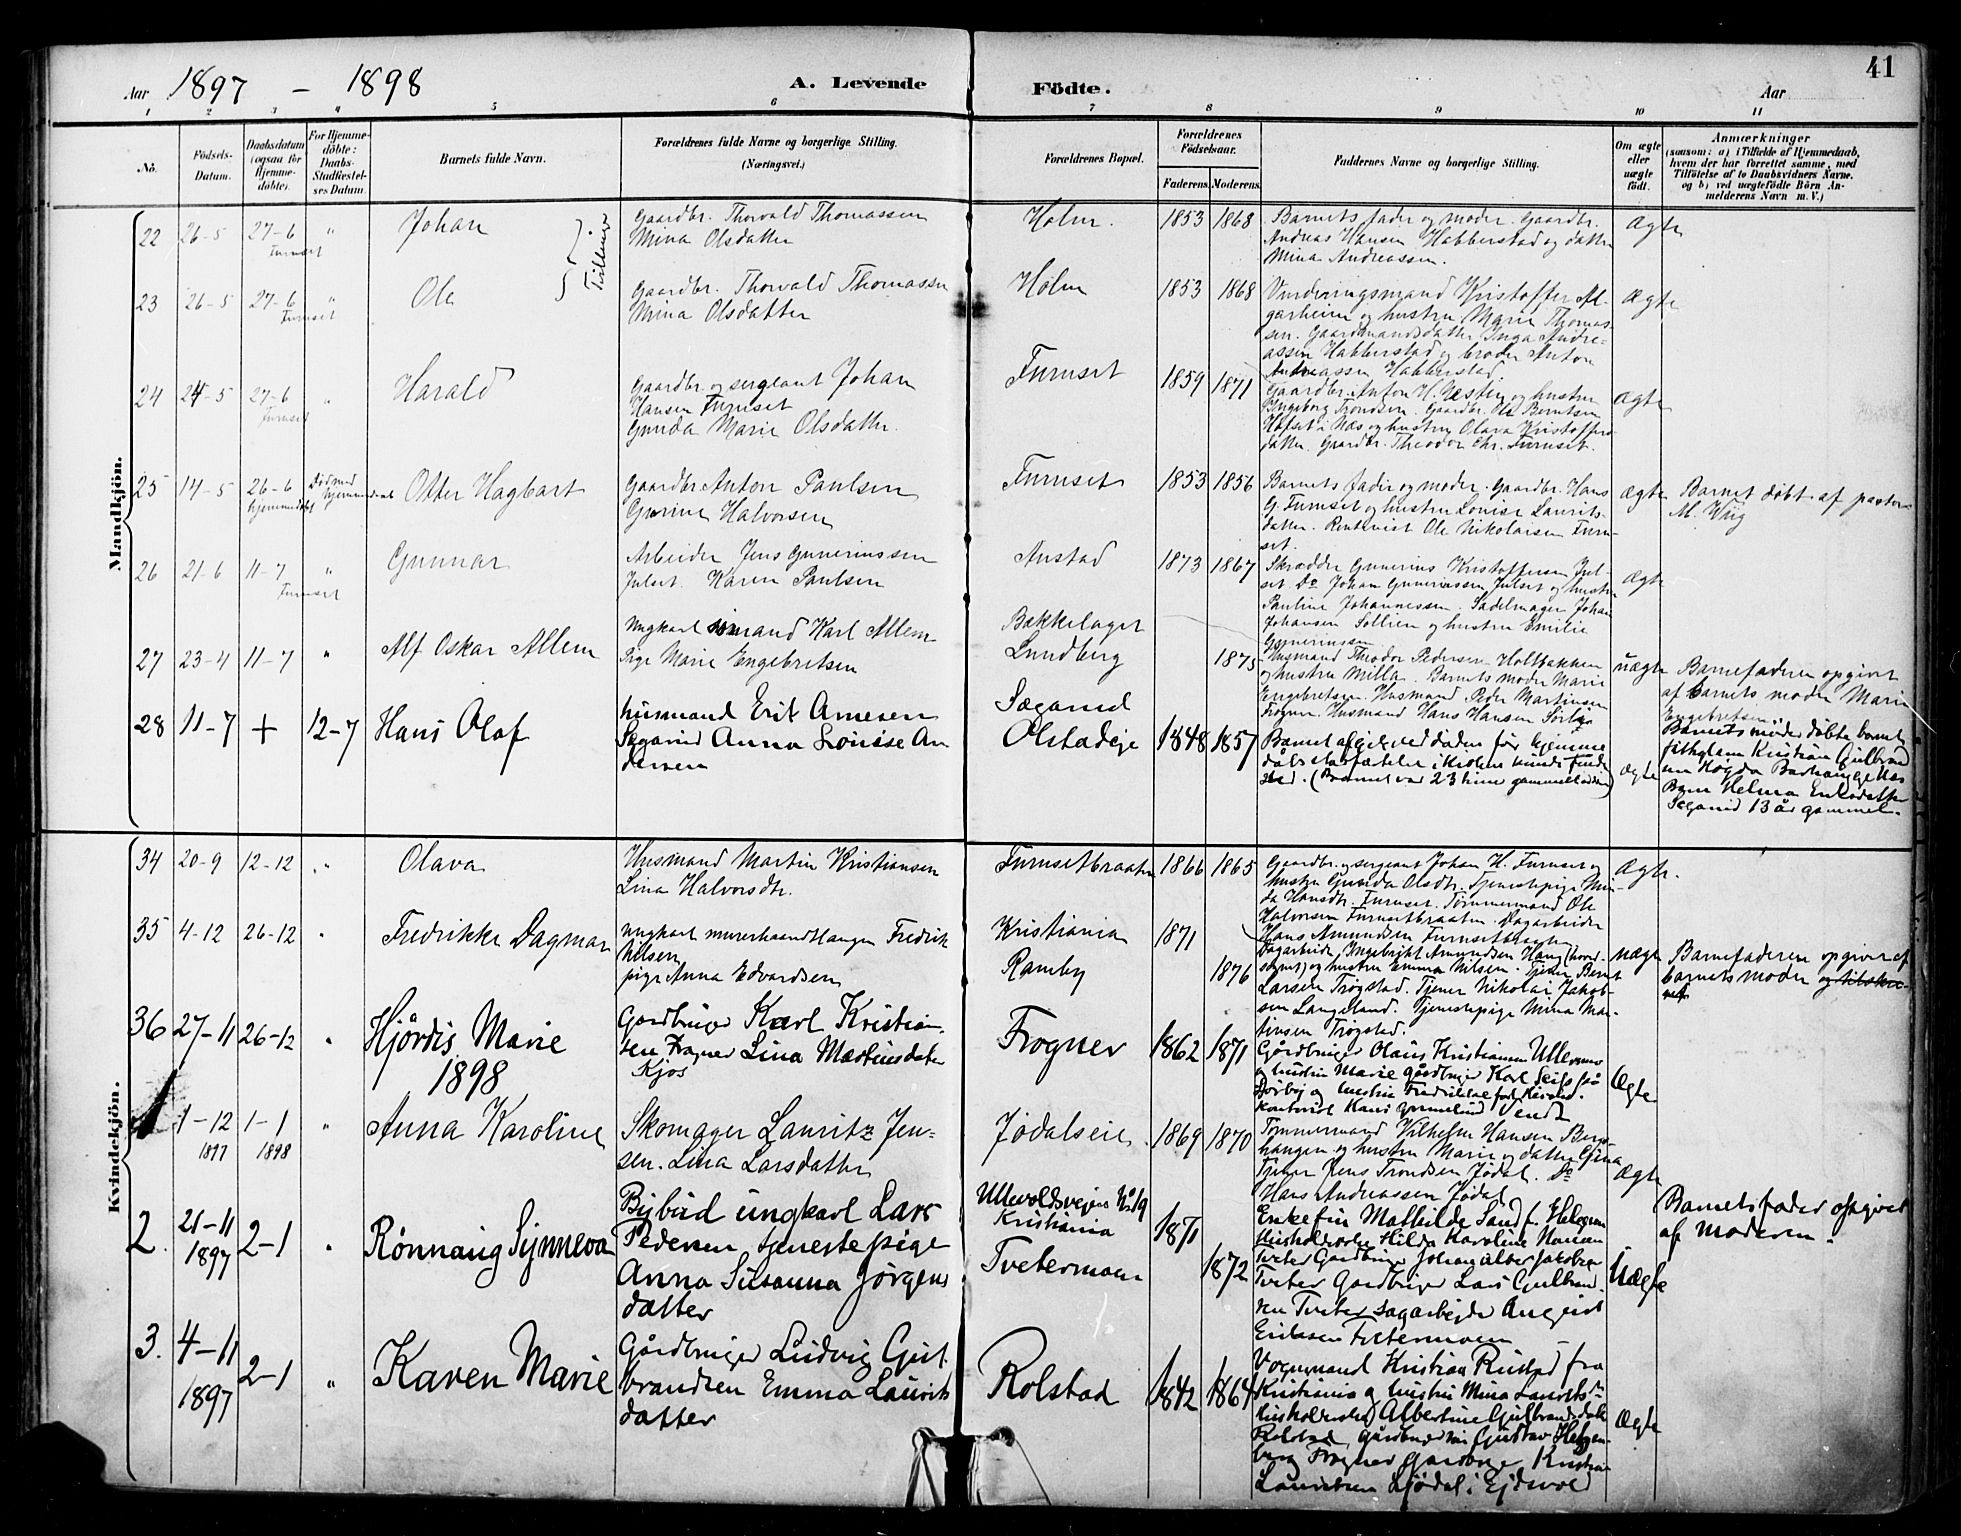 41
Aar 1897 – 1898
A. Levende Födte.
Aar
1 2 3 4 5 6 7 8 9 10 11
No.
Födsels-Datum.
Daabsdatum (ogsaa for Hjemme-döbte).
For Hjemme-döbte: Daabs-Stadfæstel-ses Datum.
Barnets fulde Navn.
Forældrenes fulde Navne og borgerlige Stilling. (Næringsvei.)
Forældrenes Bopæl.
Forældrenes Födselsaar.
Faderens. Moderens.
Faddernes Navne og borgerlige Stilling.
Om ægte eller uægte födt.
Anmærkninger
(saasom: a) i Tilfælde af Hjemmedaab,
hvem der har forrettet samme, med
Tilföielse af to Daabsvidners Navne.
og b) ved uægtefödte Börn An-
melderens Navn m. V.)
Mandkjön.
22 26-5 27-6 Furuset " Johan Tvillinger
Gaardbr. Thorvald Thomassen
Mina Olsdatter
Holm. 1853 1868
Barnets fader og moder. Gaardbr.
Andreas Hansen Habberstad og datter
Mina Andreassen.
Ægte
23 26-5 27-6 Furuset " Ole
Gaardbr. Thorvald Thomassen
Mina Olsdatter
Holm 1853 1868
Vurderingsmand Kristoffer Al-
garheim og hustru Marie Thomas-
sen. Gaardmandsdatter Inga Andre-
assen Habberstad og broder Anton
Andreassen Habberstad.
Ægte
24 24-5 27-6 Furuset " Harald
Gaardbr. og sergeant Johan
Hansen Furuset
Gunda Marie Olsdatter.
Furuset 1859 1871
Gaardbr. Anton H. og hustru
Ingeborg Trondsen. Gaardbr. Ole Berntsen
Hofset i Næs og hustru Olava Kristoffers-
datter. Gaardbr. Theodor Chr. Furuset.
Ægte
25 14-5 26-6 hjemmedøbt Otter Hagbart
Gaardbr. Anton Paulsen
Gurine Halvorsen
Furuset 1853 1856
Barnets fader og moder. Gaardbr. Hans
G. Furuset og hustru Louise Laurits-
datter. Ole Nikolaisen Furu-
set.
Ægte
Barnet døbt af pastor
M. Wiig
26 21-6 11-7 Furuset " Gunnar
Arbeider Jens Gunerinssen
Julset. Karen Paulsen
Anstad 1873 1867
Skrædder Gunerius Kristoffersen Jul-
set. Do Johan Gunerinssen Julset og hustru
Pauline Johannessen. Sadelmager Johan
Johansen Sollien og hustru Emilie
Gunerinssen
Ægte
27 23-4 11-7 " Alf Oskar Allem
Ungkarl Karl Allem
Pige Marie Engebretsen
Bakkelaget
Lundberg
1875
Husmand Theodor Pedersen Holtbakken
og hustru Milla. Barnets moder Marie
Engebretsen. Husmand Peder Martinsen
Frogner. Husmand Hans Hansen
uægte
Barnefaderen opgivet
af barnets moder Marie
Engebretsen.
28 11-7 + 12-7 Hans Olaf
Husmand Erik Arnesen
Anna Louise An
dersen
Olstadeje 1848 1857
Barnet afgik ved døden før hjemme
(Barnet var 23 time gammel
Ægte
Barnets moder døbte barnet
Kristian Gulbrand
sen
Helma Eriksdatter
13 år gammel.
Kvindekjön.
34 20-9 12-12 " Olava
Husmand Martin Kristiansen
Lina Halvorsdtr.
Furusetbraaten 1866 1865
Gaardbr. og sergeant Johan H. Furuset og
hustru Gunda Olsdtr. Tjenestepige Min-
da Hansdtr. Furuset. Tømmermand Ole
Halvorsen Furusetbraaten. Dagarbeider
Hans Amundsen Furusetbraaten
Ægte.
35 4-12 26-12 " Fredrikke Dagmar
Ungkarl murerhaandlanger Fredrik
Nilsen
pige Anna Edvardsen
Kristiania
Ramby
1871 1876
Dagarbeider Ingebrigt Amundsen Haug
og hustru Emma Nilsen. Tjener Bernt
Larsen Trøgstad. Tjener Nikolai Jakob-
sen Langeland. Tjenestepige Mina Mar-
tinsen Trøgstad.
uægte
Barnefaderen opgivet af
barnets moder
36 27-11 26-12 " Hjördis Marie
Gårdbruger Karl Kristian-
sen Frogner Lina Martinsdatter
Kjos
Frogner 1862 1871
Gårdbruger Olaus Kristiansen
og hustru Marie gårdbruger Karl
og hustru Fredrikke
Ægte
1898
1 1-12 1897 1-1 1898 " Anna Karoline
Skomager Lauritz Jen-
sen. Lina Larsdatter
Jødalseie 1869 1870
Tømmermand Vilhelm Hansen Berg-
haugen og hustru Marie og datter Gina
Tjener Jens Trondsen Jødal. Do
Hans Andreassen Jødal
Ægte
2. 21-11 1897 2-1 " Rönnaug Synneva
Bybud ungkarl Lars
Pedersen, tjenestepige
Anna Susanna Jørgens
datter
Ullevoldsvejen No 19
Kristiania
Tvetermoen
1871 1872
Enkefru Mathilde Sand f.
Hilda Karoline Hansen
Tveter Gårdbruger Johan Jakobsen
Tveter Gårdbruger Lars Gulbrand
sen Tveter dagarbejder August
Eriksen Tvetermoen
Uægte
Barnets fader opgivet
af Moderen.
3. 4-11 1897 2-1 " Karen Marie
Gårdbruger Ludvig Gul
brandsen Emma Laurits
datter
Rolstad 1842 1864
Vognmand Kristian Rustad fra
Kristiania og hustru Mina Lauritsdtr
Albertine Gulbrandsdatter
Rolstad, Gårdbruger Gustav
Frogner Gårdbruger Kristian
Lauritsen i Ejdsvold
Ægte